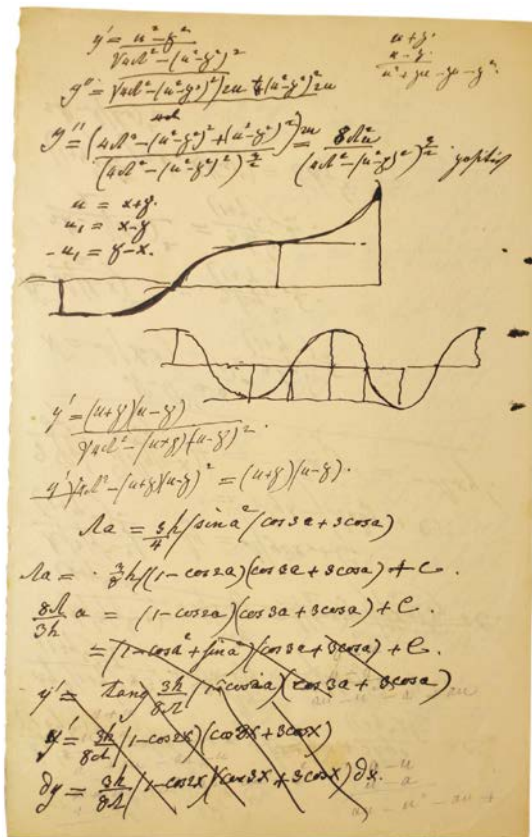 y' = u² - g² / √4Λ² - (u² - g²)²
u + g
u - g
u² + gu - gu - g²
y'' = √4Λ² - (u² - g²)² 2u + (u² - g²)² 2u
y'' = (4Λ² - (u² - g²)² + (u² - g²)²) 2u / (4Λ² - (u² - g²)²)^3/2 = 8Λ²u / (4Λ² - (u² - g²)²)^3/2
u = x + g.
u₁ = x - g
-u₁ = g - x.
y' = (u + g)(u - g) / √4Λ² - (u + g)(u - g)².
y' √4Λ² - (u + g)(u - g)² = (u + g)(u - g).
Λa = 3/4 h (sin a² (cos 3a + 3 cos a)
Λa = 3/8 h (1 - cos 2a)(cos 3a + 3 cos a) + C.
8Λ/3h a = (1 - cos 2a)(cos 3a + 3 cos a) + C.
= (1 - cos a² + sin a²)(cos 3a + 3 cos a) + C.
y' = tang 3h/8Λ (1 - cos 2a)(cos 3a + 3 cos a)
y' = 3h/8Λ (1 - cos 2x)(cos 3x + 3 cos x)
∂y = 3h/8Λ (1 - cos 2x)(cos 3x + 3 cos x) ∂x.